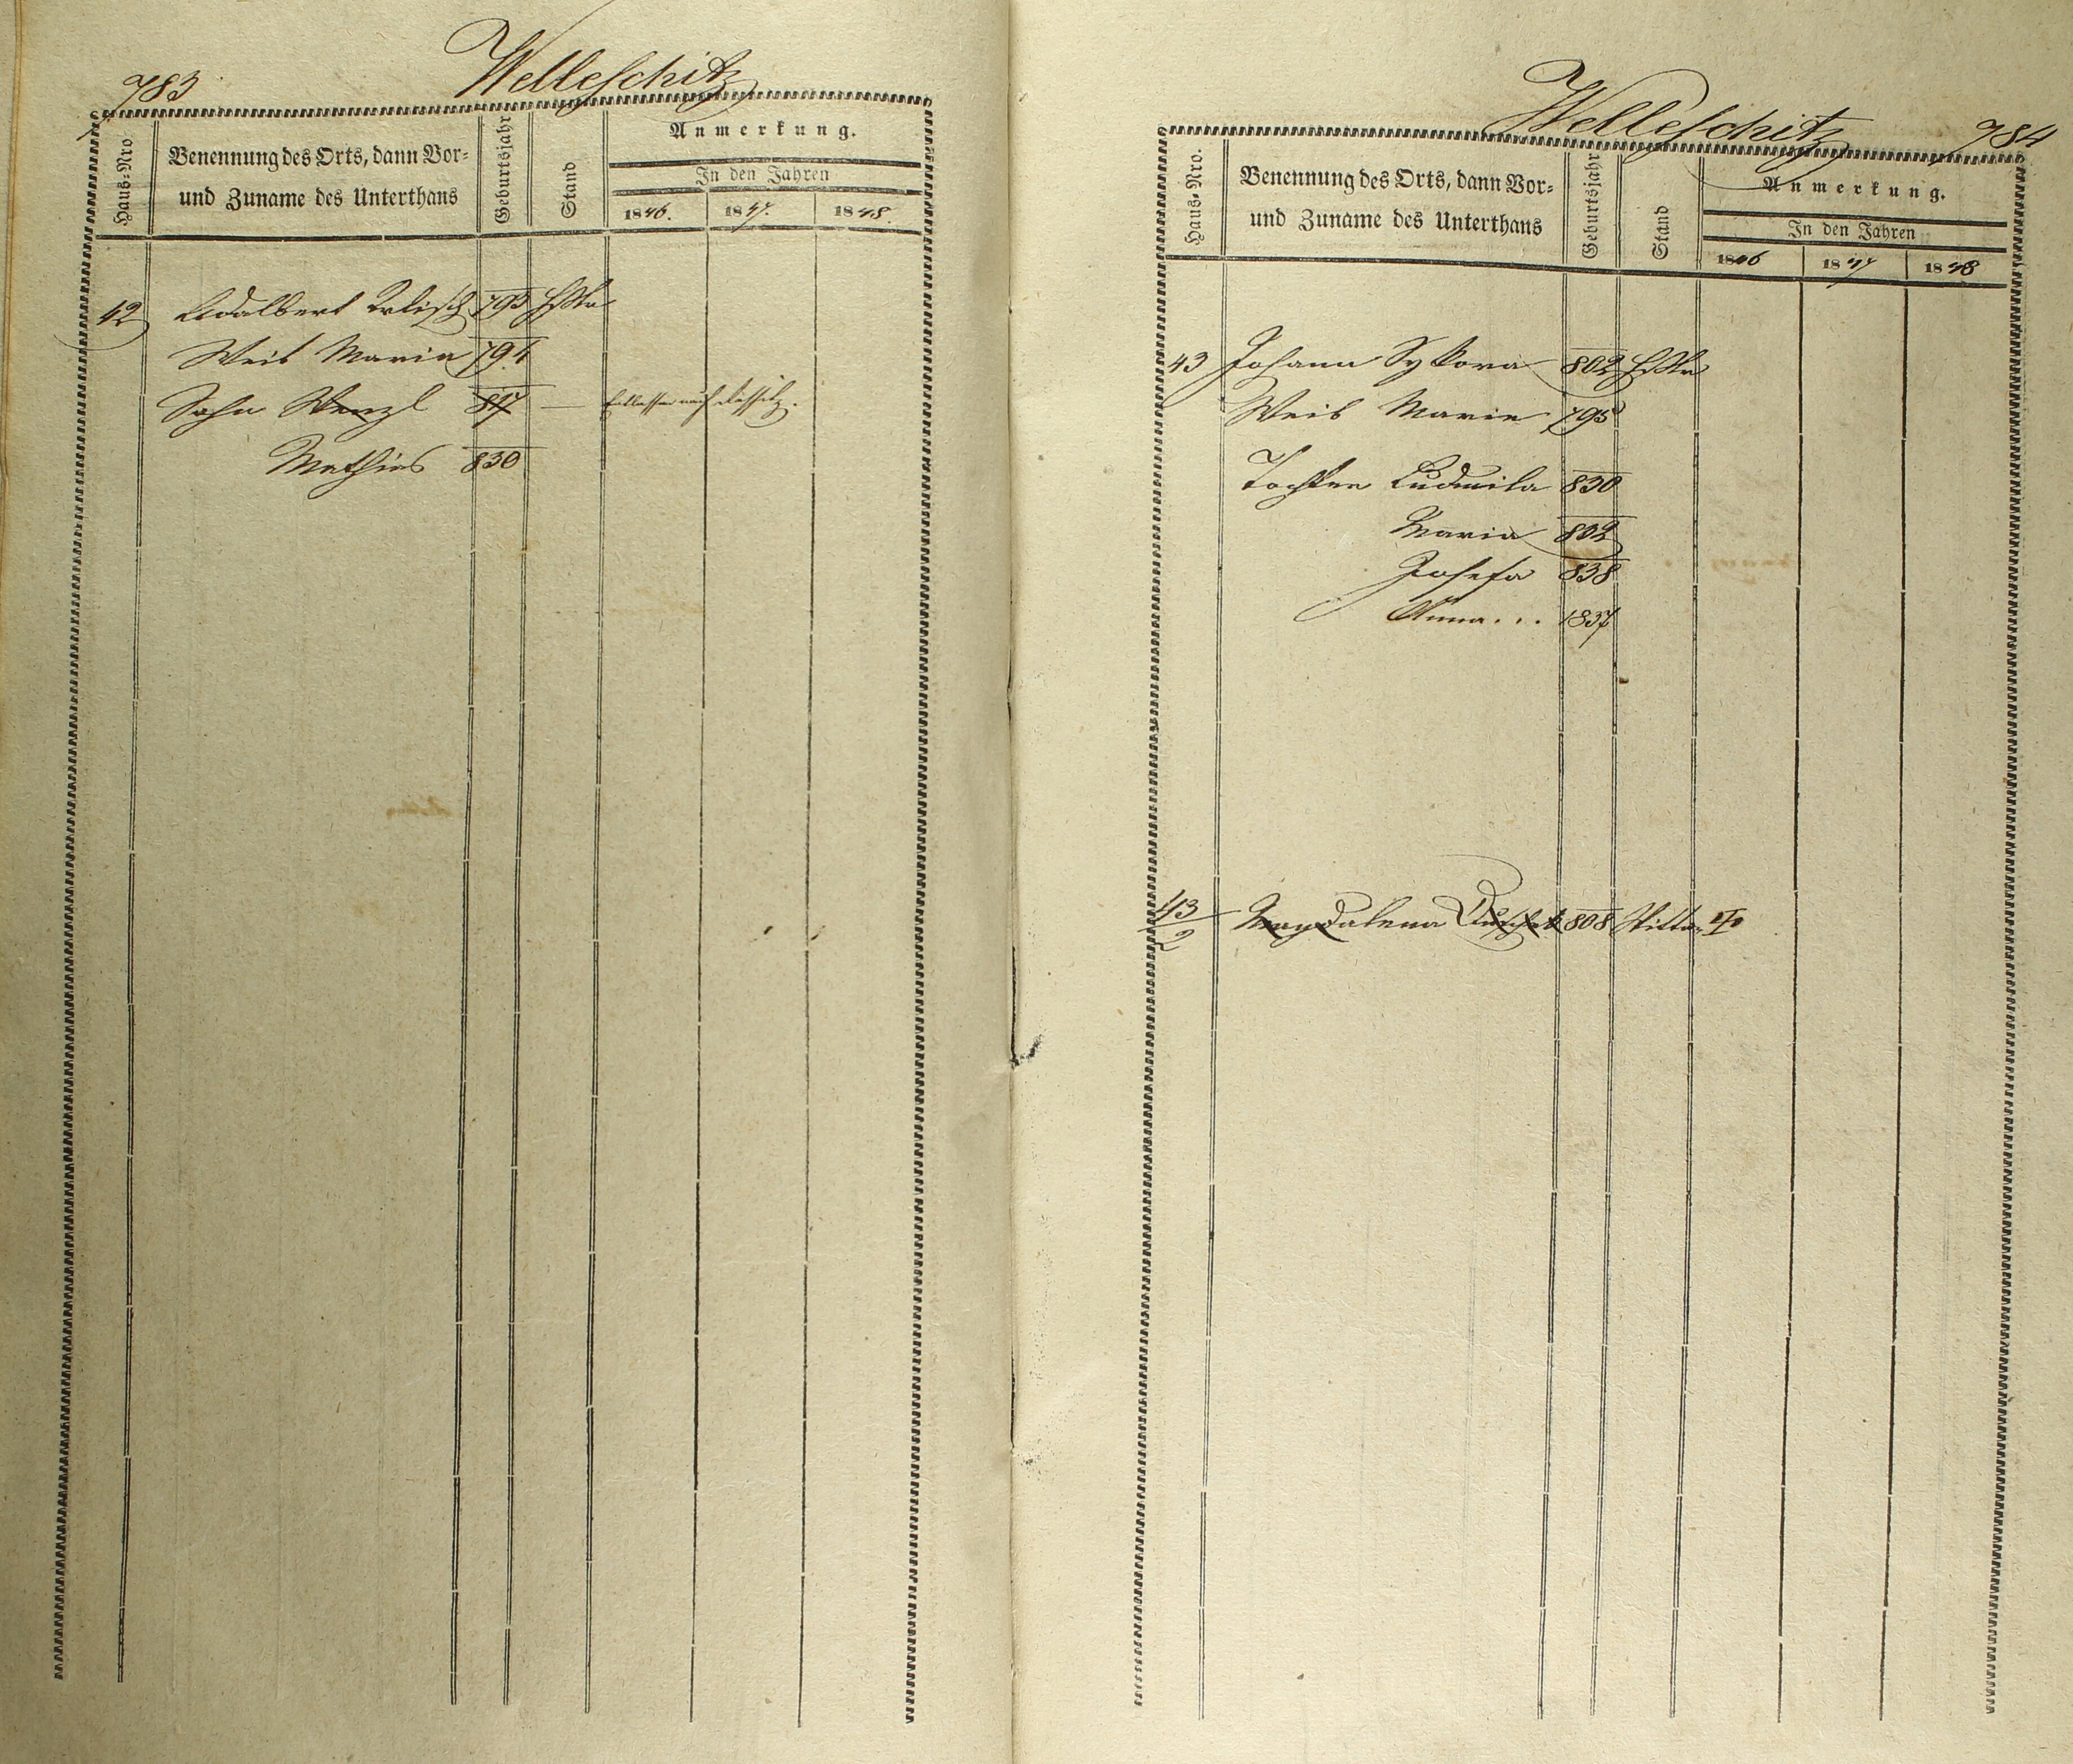 783
Welleschitz
Haus-Nro
Benennung des Orts, dann Vor-
und Zuname des Unterthans
Geburtsjahr
Stand
Anmerkung.
In den Jahren
1846. 1847. 1848.
42 Adalbert 793
Weib Maria 794
Sohn Wenzl 817 Entlassen nach
Mathias 830
Welleschitz
784
Haus-Nro.
Benennung des Orts, dann Vor-
und Zuname des Unterthans
Geburtsjahr
Stand
Anmerkung.
In den Jahren
1846 1847 1848
43 Johann Sykora 802
Weib Maria 795
Tochter Ludmila 830
Maria 832
Josefa 838
Anna... 1837
43/2 Magdalena 808